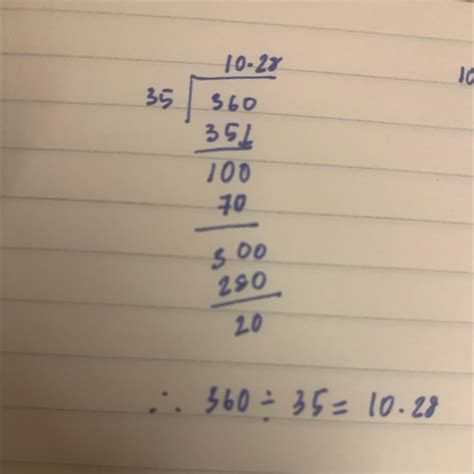 10.28
35 360
35↓
100
70
300
280
20
∴ 360 ÷ 35 = 10.28
10